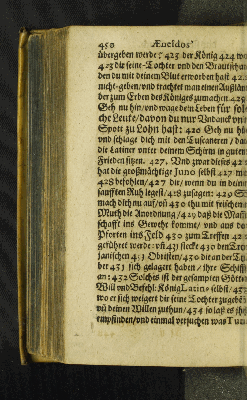 450 Æneidos
übergeben werde: 423 der König 424 wo
425 dir seine Tochter und den Brautschatz
den du mit deinem Blut erworben hast 42
nicht geben/ und trachtet man einen Außlän
der zum Erben des Königes zumachen 425
Geh nu hin/ und wage dein Leben für sol
che Leute/ davon du nur Undanck un
Spott zu Lohn hast: 426 Geh nu hin
und schlage dich mit den Tuscanern/ da
die Latiner unter deinem Schirm in gutem
Frieden sitzen. 427. Und zwar dieses 42
hat die großmächtige Juno selbst 427 mi
428 befohlen/ 427 dir/ wenn du in deiner
sanfften Ruh legest/ 428 zusagen: 429 S
mach dich nu auf/ uñ 430 thu mit freischem
Muth die Anordnung/ 429 daß die Mañ
schafft ins Gewehr komme/ und aus de
Pforten ins Feld 430 zum Treffen 42
geführet werde: uñ 431 stecke 430 den Tro
janischen 431 Obristen/ 430 die an der Ty
ber 431 sich gelagert haben/ ihre Schiffe
an: 432 Solches ist der gesampten Götter
Will und Befehl: König Latinus selbst/ 43
wo er sich weigert die seine Tochter zugeb
uñ deinen Willen zuthun/ 434 so laß es ihn
empfinden/ und einmal versuchen was Tur